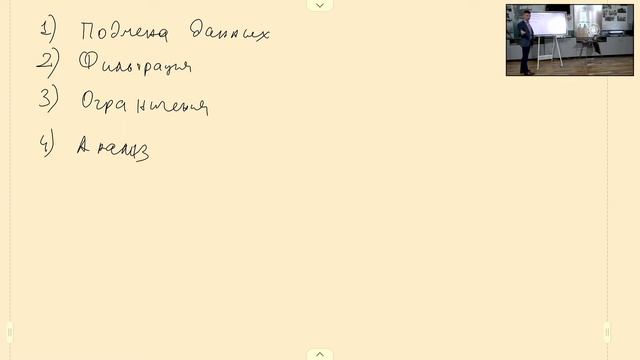 1) Подмена данных
2) Фильтрация
3) Ограничения
4) Анализ